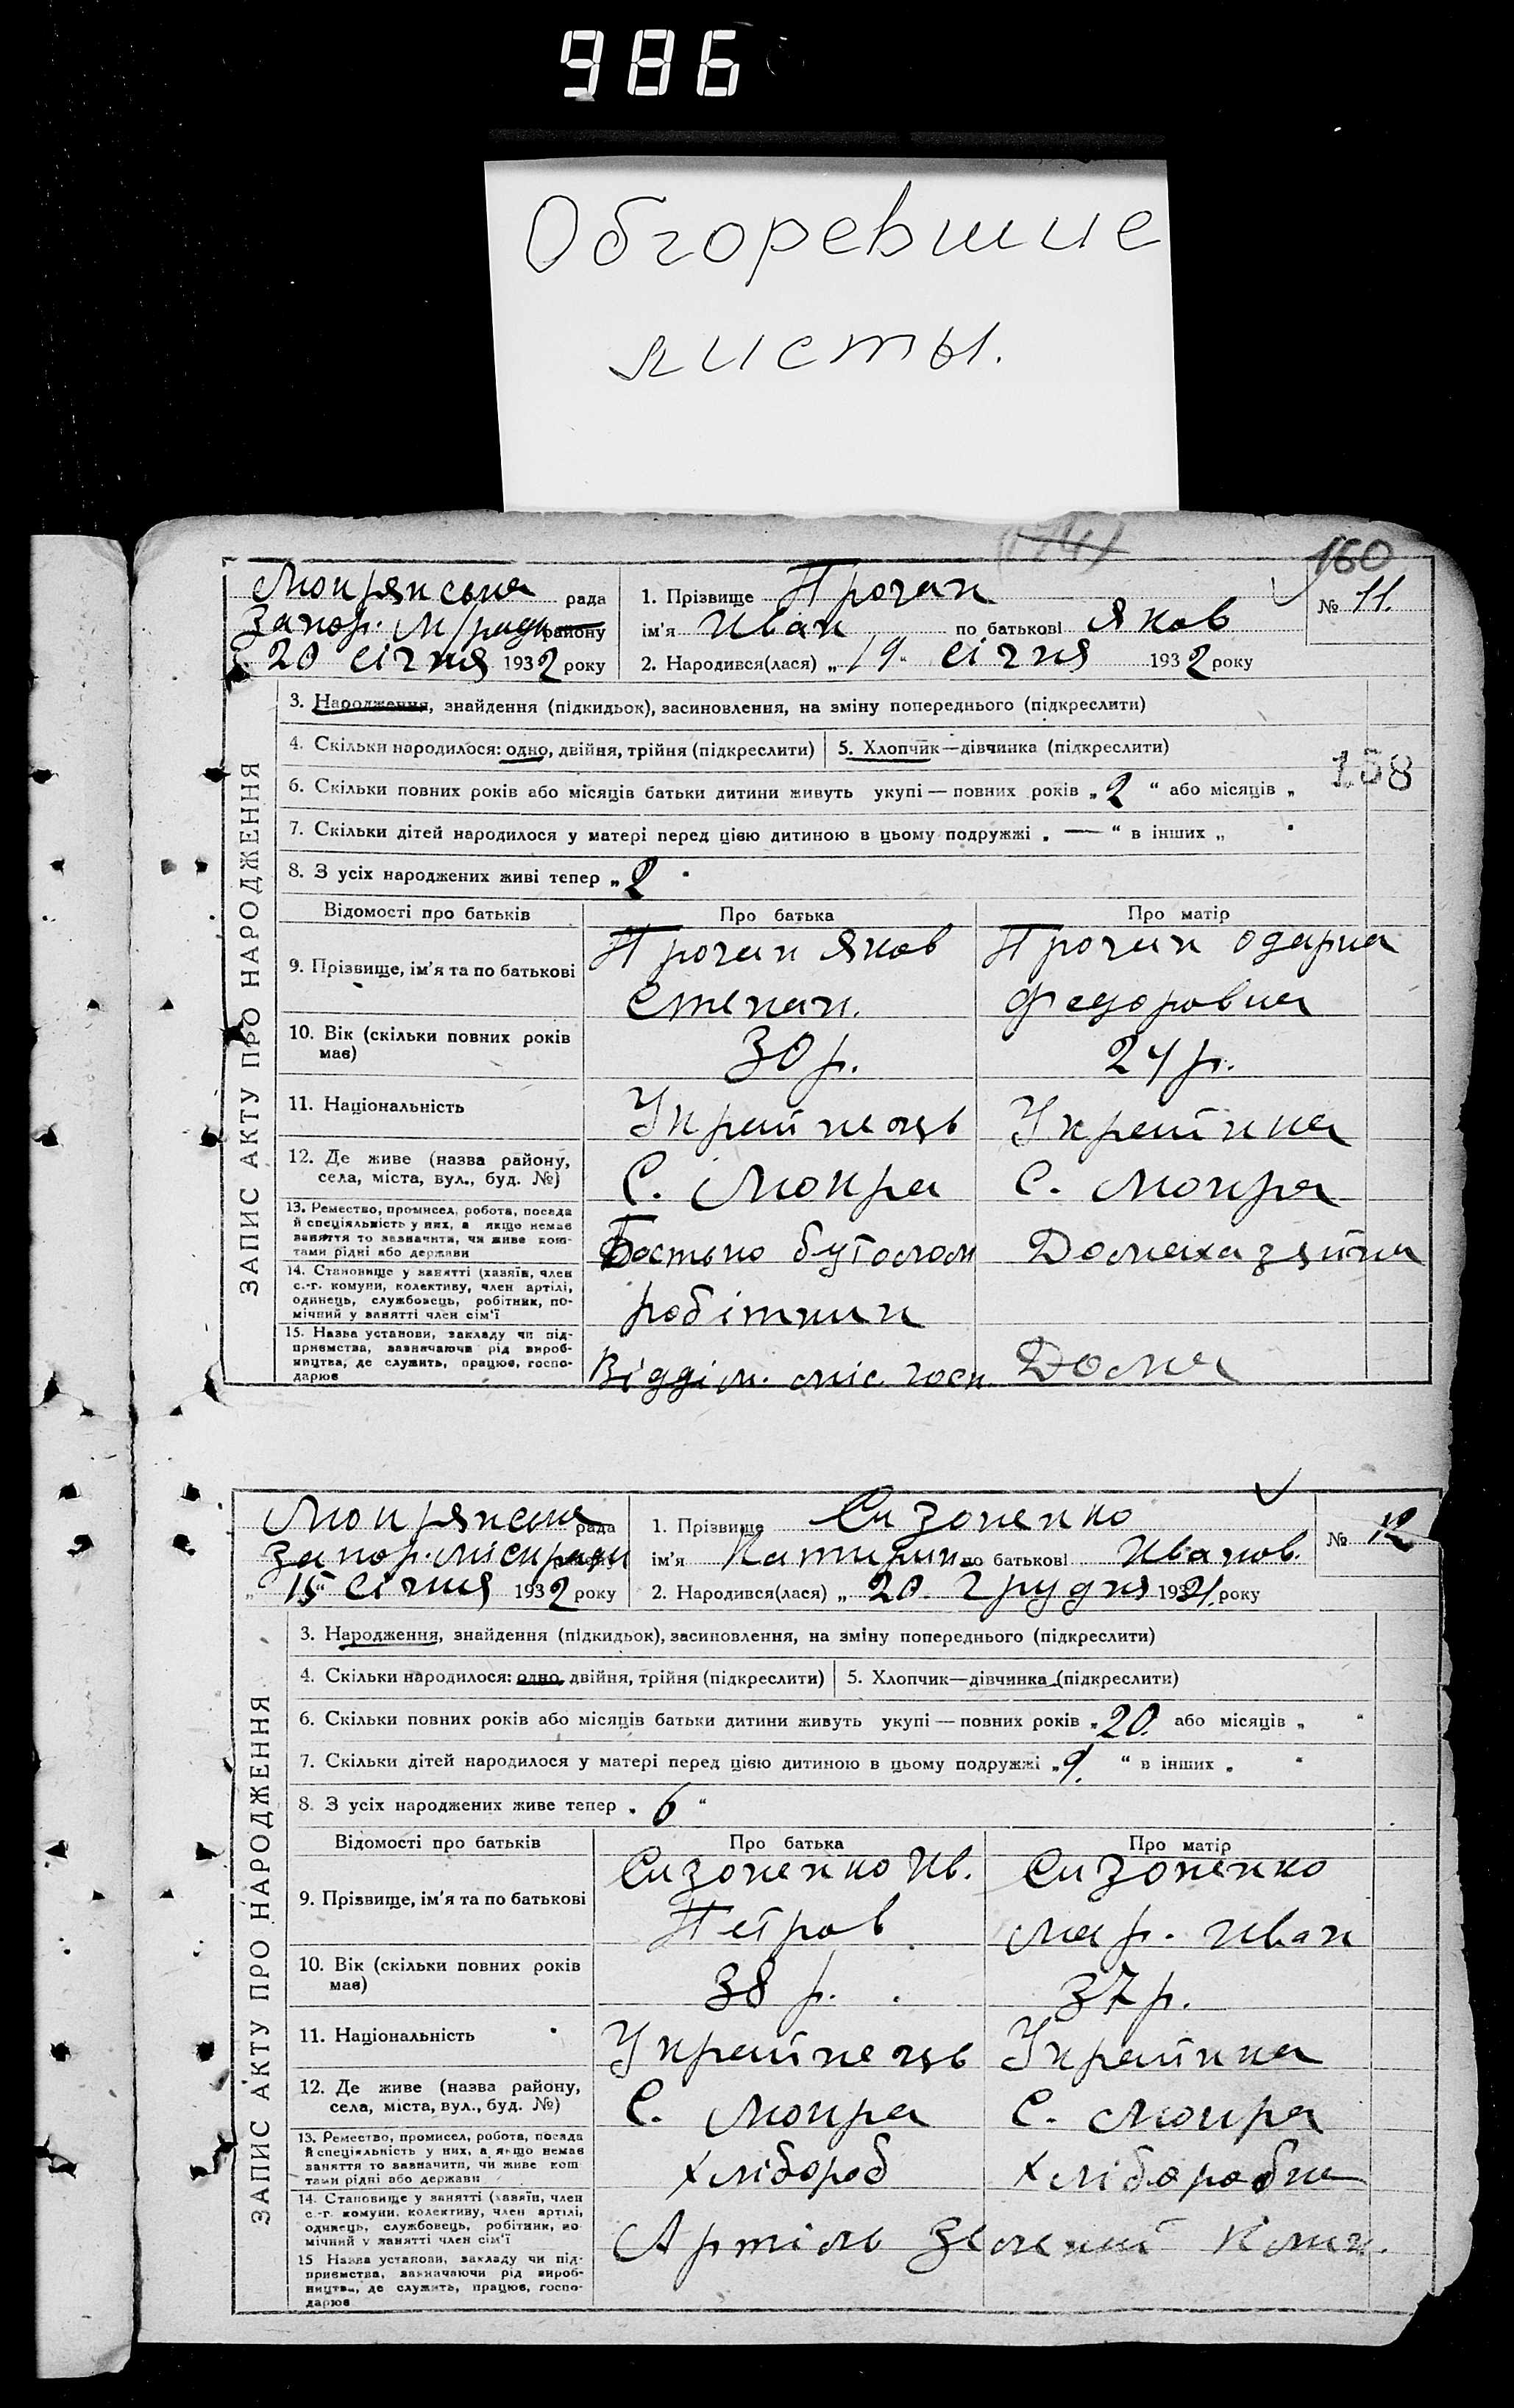 986
Обгоревшие
листы.
160
Мокрянська рада
Запор. м/ради району
20 січня 1932 року
1. Прізвище Прочан
№ 11.
ім'я Иван по батькові Яков
2. Народився(лася) „19" січня 1932 року
ЗАПИС АКТУ ПРО НАРОДЖЕННЯ
3. Народження, знайдення (підкидьок), засиновлення, на зміну попереднього (підкреслити)
4. Скільки народилося: одно, двійня, трійня (підкреслити) 5. Хлопчик—дівчинка (підкреслити)
158
6. Скільки повних років або місяців батьки дитини живуть укупі — повних років „2" або місяців „
7. Скільки дітей народилося у матері перед цією дитиною в цьому подружжі „ — " в інших „ "
8. З усіх народжених живі тепер „2"
Відомості про батьків Про батька Про матір
9. Прізвище, ім'я та по батькові
Прочан Яков
Степан.
Прочан Одарка
Федоровна
10. Вік (скільки повних років
має)
30 р. 24 р.
11. Національність Украйнець Украйнка
12. Де живе (назва району,
села, міста, вул., буд. №)
С. Мокра С. Мокра
13. Ремество, промисел, робота, посада
й спеціяльність у них, а якщо немає
заняття то зазначити, чи живе кош-
тами рідні або держави
Домахазяйка
14. Становище у занятті (хазяїн, член
с.-г. комуни, колективу, член артілі,
одинець, службовець, робітник, по-
мічний у занятті член сім'ї
робітник
15. Назва установи, закладу чи під-
приємства, зазначаючи рід вироб-
ництва, де служить, працює, госпо-
дарює
Відділ. міс. госп. Дома
Мокрянська рада
Запор. міскради
15 січня 1932 року
1. Прізвище Сизоненко
№ 12
ім'я Катирин. по батькові Иванов.
2. Народився(лася) „ 20. грудня 1931. року
ЗАПИС АКТУ ПРО НАРОДЖЕННЯ
3. Народження, знайдення (підкидьок), засиновлення, на зміну попереднього (підкреслити)
4. Скільки народилося: одно, двійня, трійня (підкреслити) 5. Хлопчик—дівчинка (підкреслити)
6. Скільки повних років або місяців батьки дитини живуть укупі — повних років „20. або місяців „ "
7. Скільки дітей народилося у матері перед цією дитиною в цьому подружжі „9. " в інших „ "
8. З усіх народжених живе тепер „ 6 "
Відомості про батьків Про батька Про матір
9. Прізвище, ім'я та по батькові
Сизоненко Ив.
Петров
Сизоненко
Мар. Иван
10. Вік (скільки повних років
має)
38 р. 37 р.
11. Національність Украйнець Украйнка
12. Де живе (назва району,
села, міста, вул., буд. №)
С. Мокра С. Мокра
13. Ремество, промисел, робота, посада
й спеціяльність у них, а якщо немає
заняття то зазначити, чи живе кош-
тами рідні або держави
Хлібороб Хліборобка
14. Становище у занятті (хазяїн, член
с.-г. комуни, колективу, член артілі,
одинець, службовець, робітник, по-
мічний у занятті член сім'ї
Артіль Зелений
15 Назва установи, закладу чи під-
приємства, зазначаючи рід вироб-
ництва, де служить, працює, госпо-
дарює